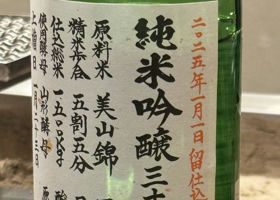 二〇二五年一月一日 留仕込
純米吟醸三十
原料米 美山錦
精米歩合 五割五分
仕込総米 一五〇〇kg
使用酵母 山形酵母
上槽日 一月二十三日